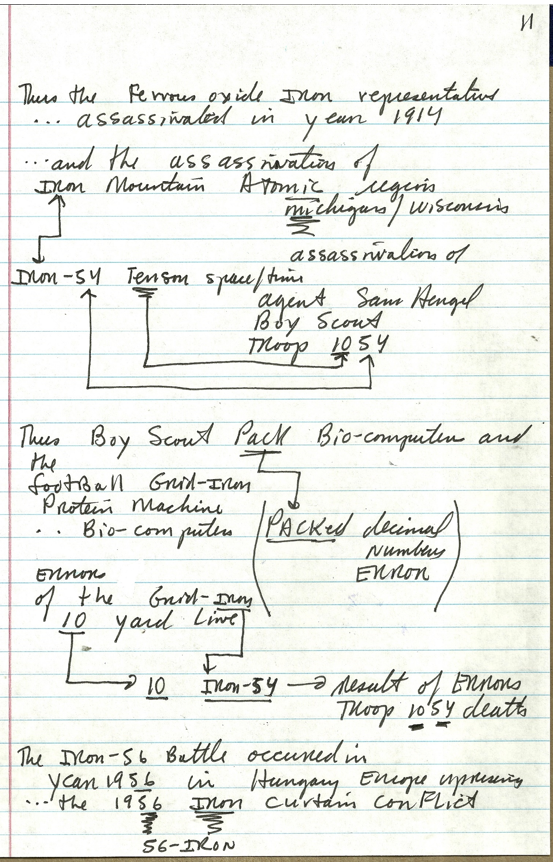 11
Thus the Ferrous oxide Iron representative
... assassinated in year 1914
...and the assassination of
Iron Mountain Atomic region
michigan/Wisconsin
assassination of
Iron-54 Tenson space/time
agent Sam Hengel
Boy Scout
Troop 1054
Thus Boy Scout Pack Bio-computer and
the
football Grid-Iron
Protein Machine
.. Bio-computer
(PACKed decimal
Numbers
ERROR)
ERRORS
of the Grid-Iron
10 yard Line
10 Iron-54 → result of Errors
Troop 1054 deaths
The Iron-56 Battle occurred in
year 1956 in Hungary Europe uprising
... the 1956 Iron Curtain conflict
56-IRON